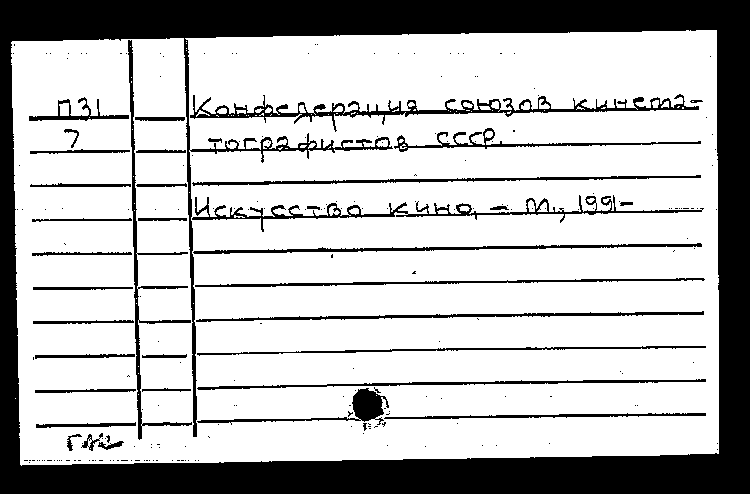 П31 Конфедерация союзов кинема-
7 тографистов СССР.
Искусство кино, – М., 1991-